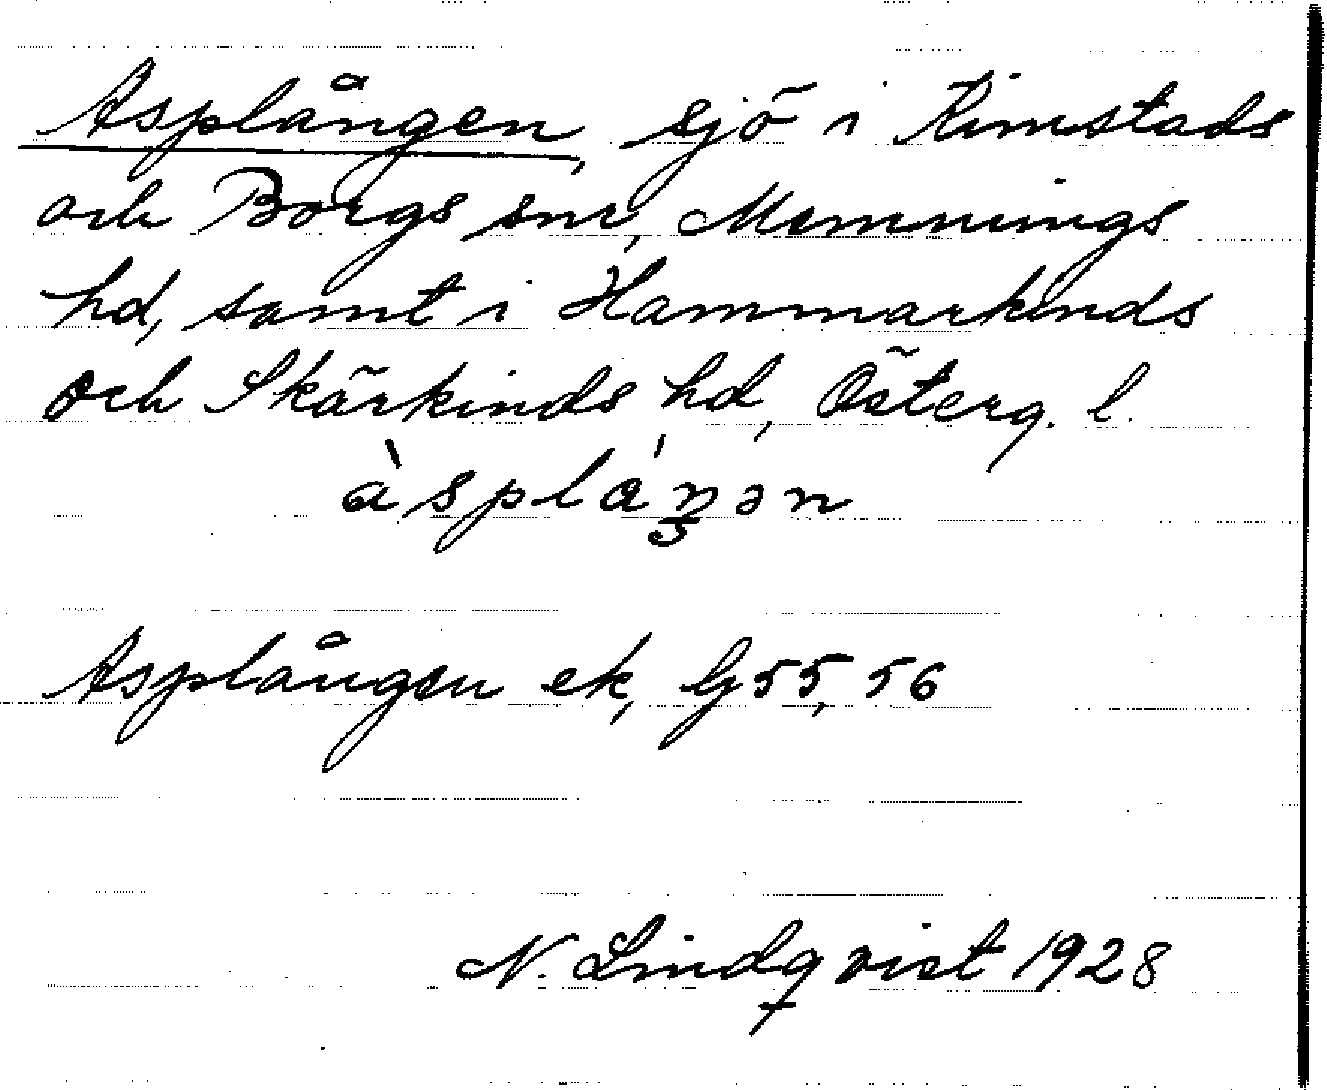 Asplången, sjö i Kimstads
och Borgs snr, Memmings
hd, samt i Hammarkinds
och Skärkinds hd, Österg. l.
àsplåŋən
Asplången ek, G 55, 56
N. Lindqvist 1928